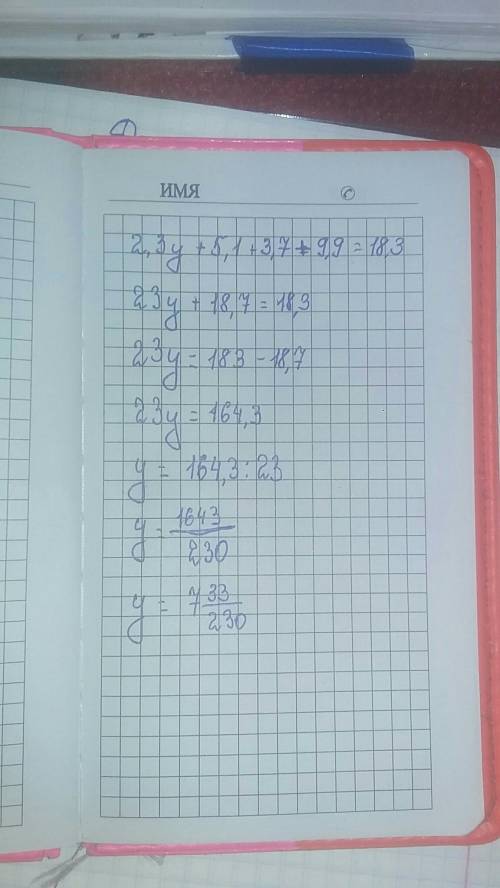 ИМЯ
2,3y + 5,1 + 3,7 + 9,9 = 18,3
23y + 18,7 = 18,3
23y = 183 - 18,7
23y = 164,3
y = 164,3 : 23
y = 1643/230
y = 7 33/230